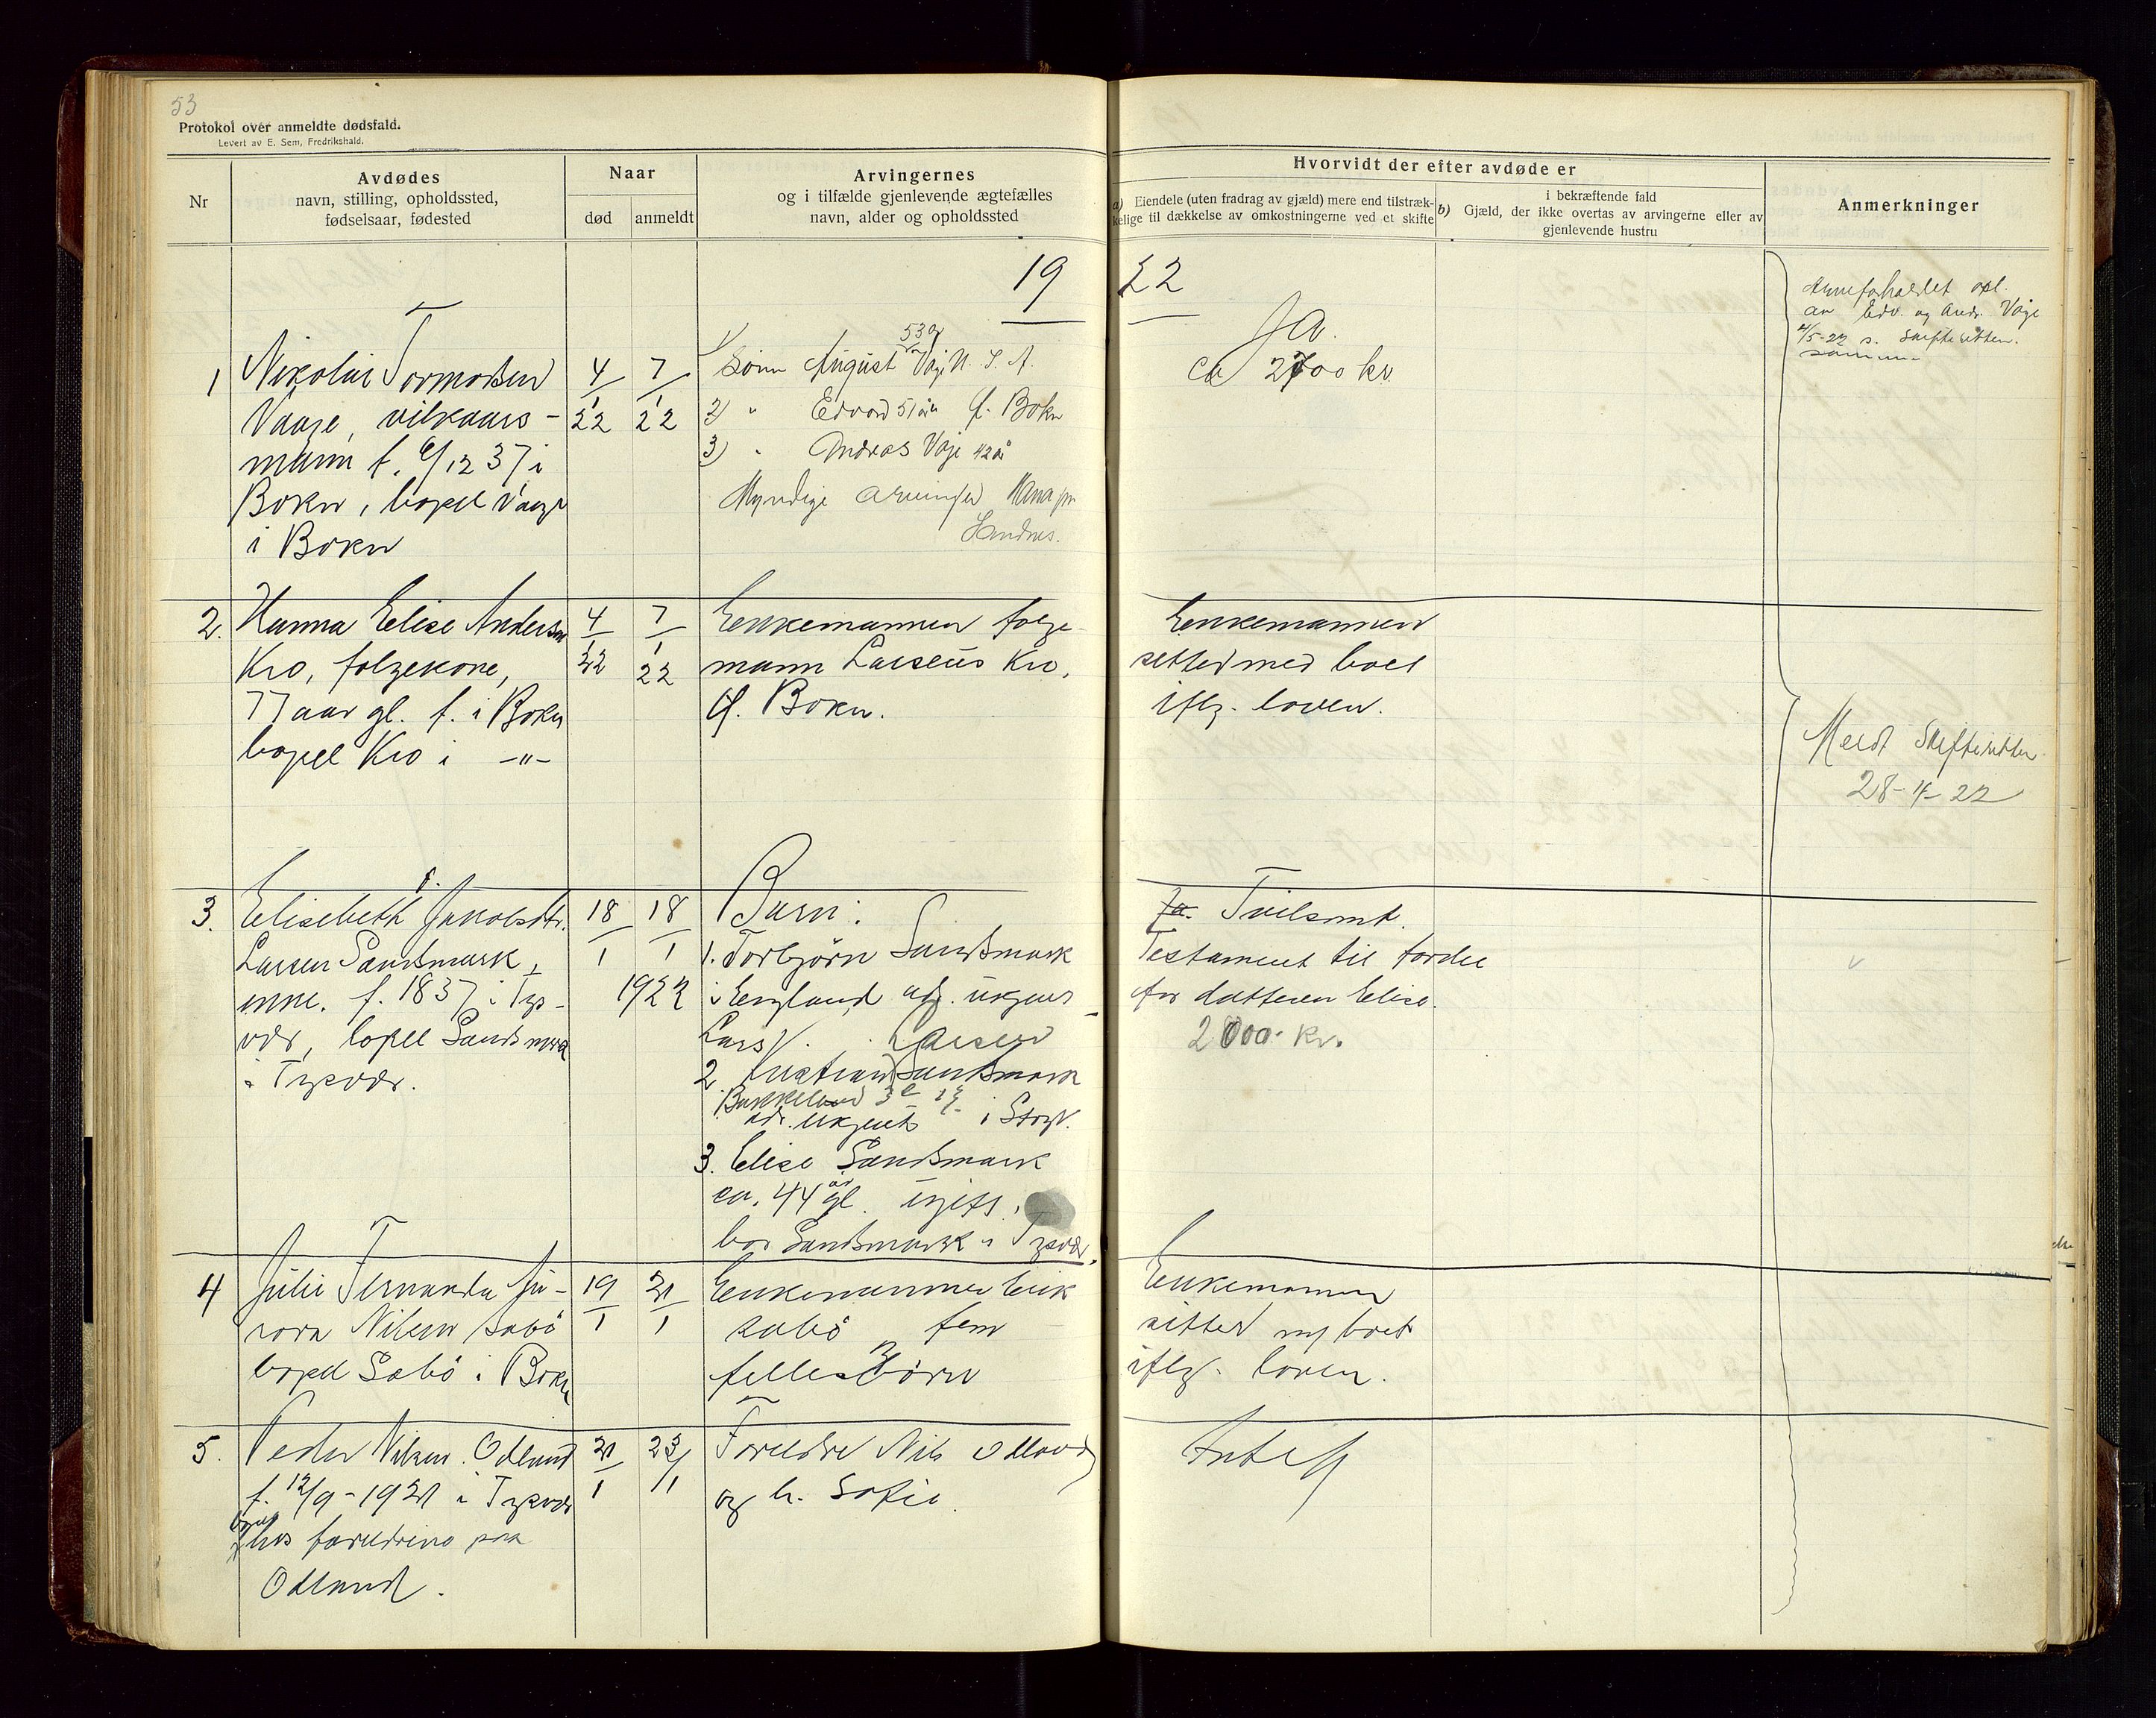 53
Protokol over anmeldte dødsfald.
Levert av E. Sem, Fredrikshald.
Nr
Avdødes
navn, stilling, opholdssted,
fødselsaar, fødested
Naar
død
anmeldt
Arvingernes
og i tilfælde gjenlevende ægtefælles
navn, alder og opholdssted
Hvorvidt der efter avdøde er
a) Eiendele (uten fradrag av gjæld) mere end tilstræk-
kelige til dækkelse av omkostningerne ved et skifte
b) i bekræftende fald
Gjæld, der ikke overtas av arvingerne eller av
gjenlevende hustru
Anmerkninger
19 22
1 Nikolai Tormodsen
Vaage, vilkaars-
mann f. 6/12 37 i
Bokn, bopel Vaage
i Bokn
4/1 22
7/1 22
53 år
1) Sönn August Våge U. S. A.
2) " Edvard 51 år Bokn
3) " Andreas Våge 42 år
Myndige arvinger
Ja.
ca 2700 kr
Arveforholdet opl.
av Edv. og Andr. Våge
/5-22 s. Skifteretten.
2. Hanna Elise Andersen
Kro, folgekone,
77 aar gl. f. i Bokn
bopel Kro i -"-
4/1 22
7/1 22
Enkemannen folge-
mann Larsens Kro,
Bokn.
Enkemannen
sitter med boet
iflg. loven.
Meldt Skifteretten
28-4-22
3. Elisabeth Jakobsdtr.
Larsen Sandsmark,
enke. f. 1837 i Tys-
vær, bopel Sandsmark
i Tysvær.
18/1
18/1
1922
Barn:
1. Torbjörn Sandsmark
i England adr. ukjent
Lars Larsen
2. Kristian Sandsmark
Bakkeland
adr. ukjent i Stav.
3. Elise Sandsmark
ca. 44 år gl. ugift,
bor Sandsmark i Tysvær.
Ja. Tvilsomt.
Testament til fordel
for datteren Elise.
2000 kr.
4 Julie Fernanda Ju-
Nilsen Sabö
bopel Sabö i Bokn
19/1
21/1
Enkemannen Erik
Sabö fem
fellesbörn
Enkemannen
sitter m/ boet
iflg. loven.
5. Peder Nilsen Odland
f. 12/9-1921 i Tysvær
bopel hos foreldrene paa
Odland.
21/1
23/1
Foreldre Nils Odland
og h. Sofie.
Intet